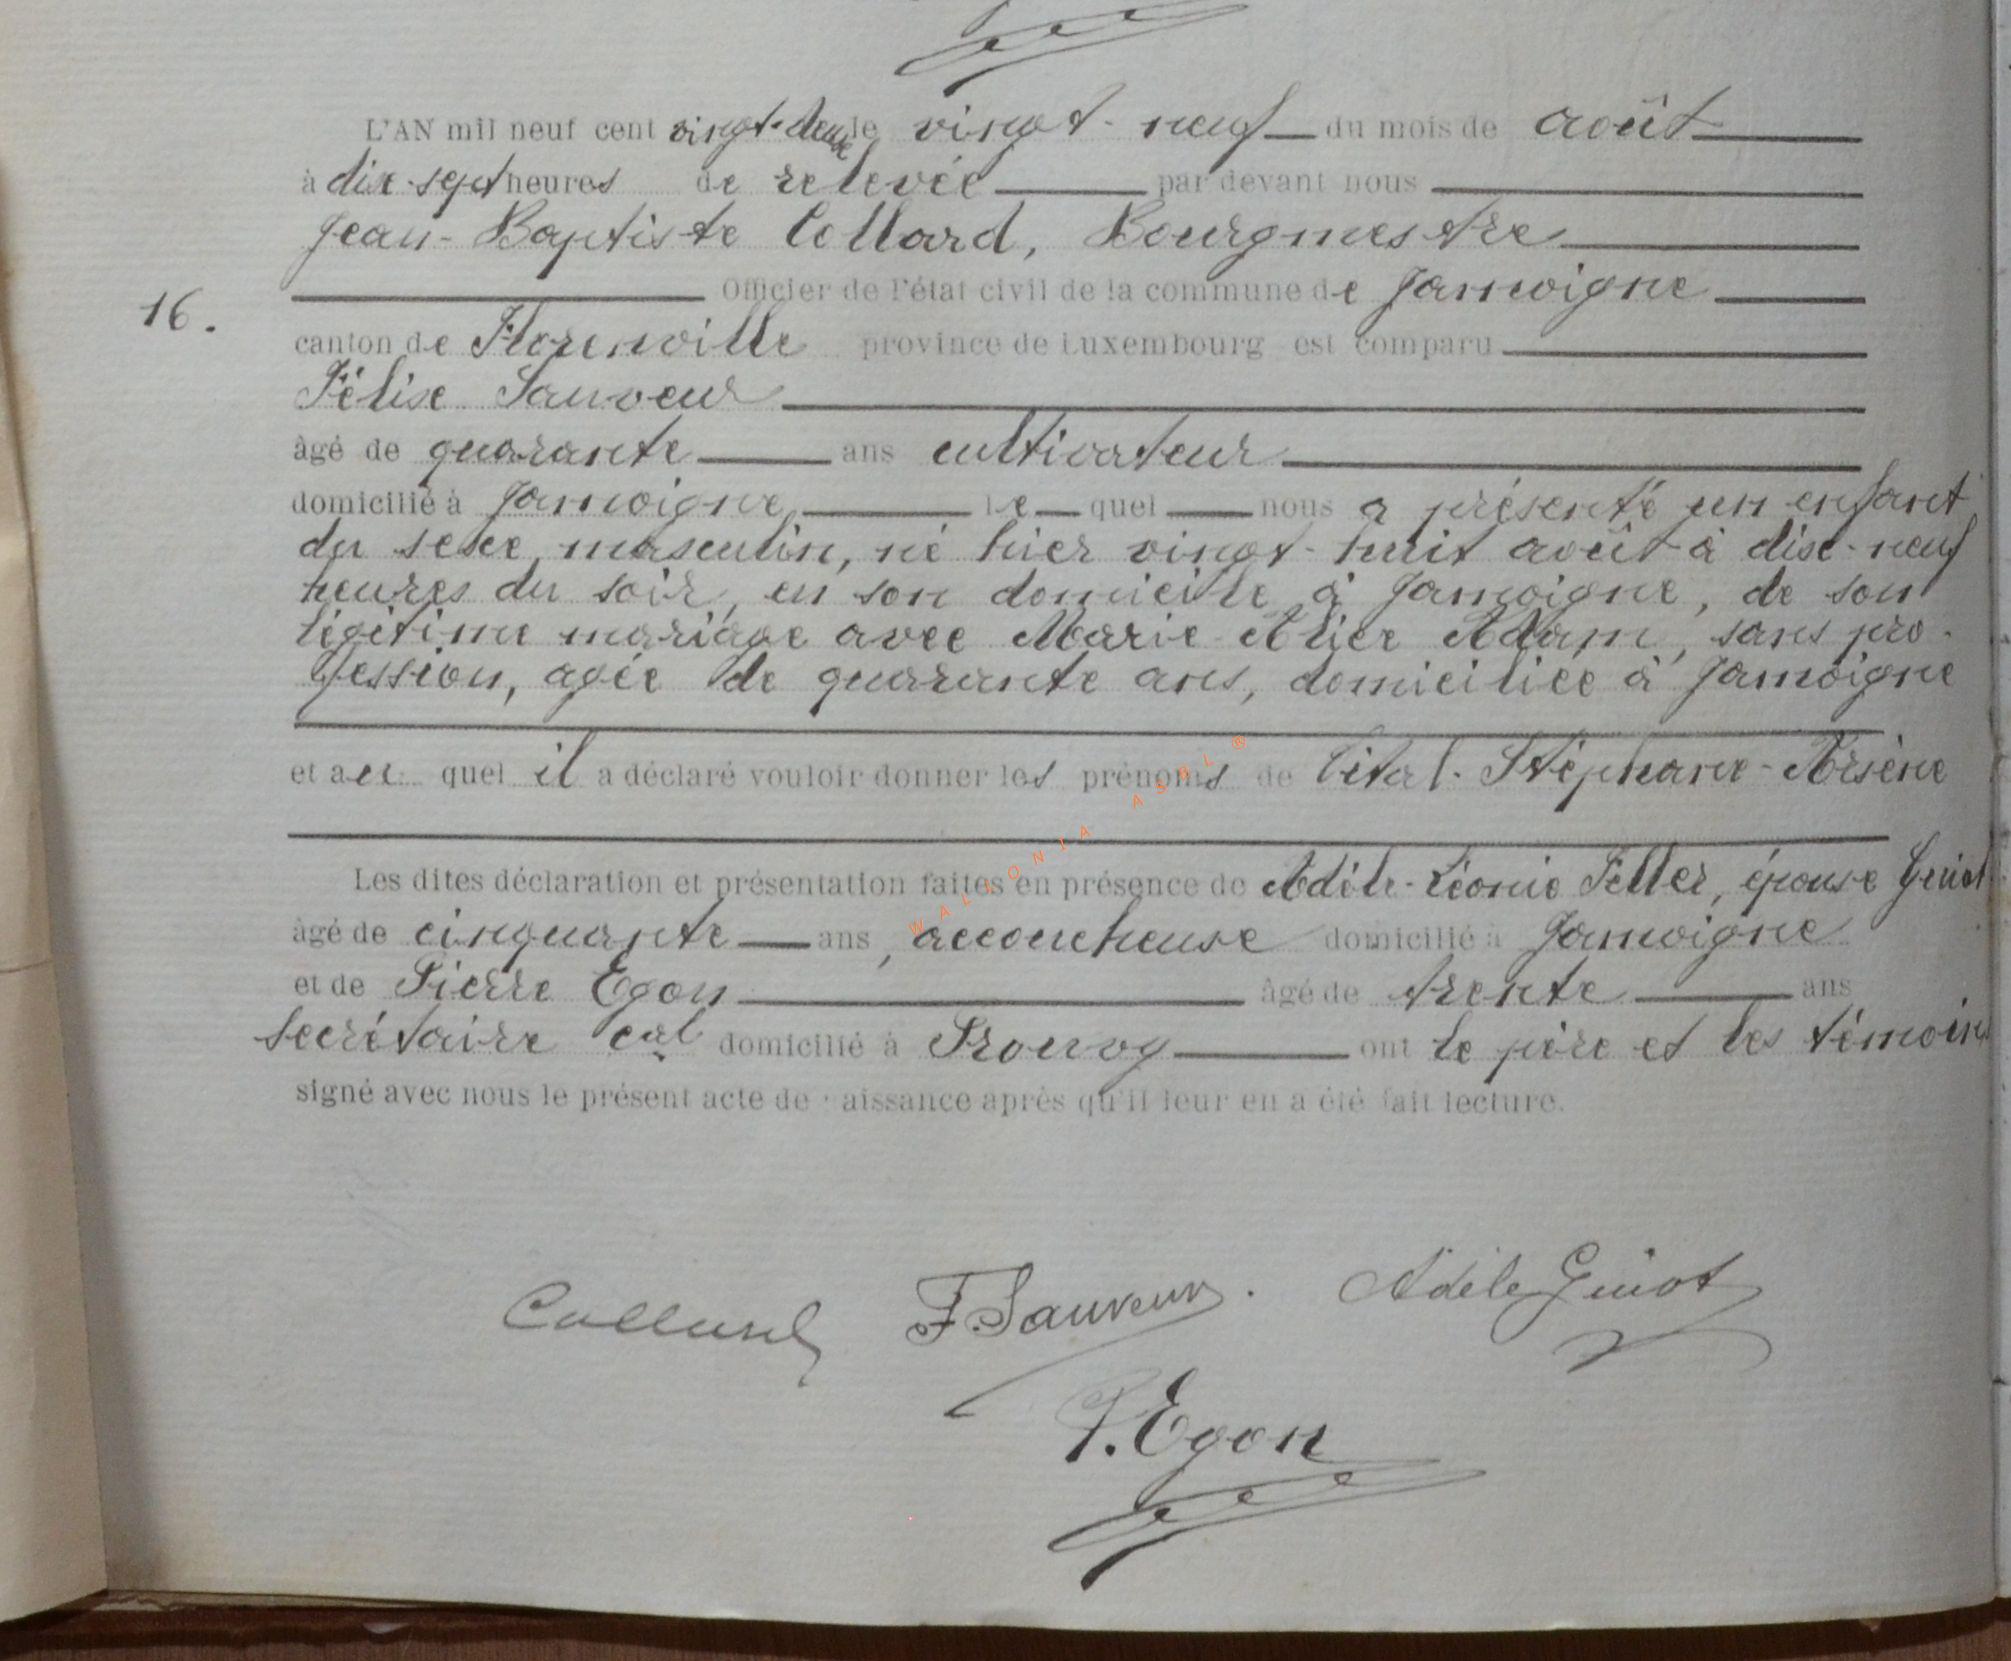 L'AN mil neuf cent vingt-deux le vingt-neuf du mois de août
à dix-sept heures de relevée par devant nous
Jean-Baptiste Collard, Bourgmestre
Officier de l'état civil de la commune de Jamoigne
16.
canton de Florenville province de Luxembourg est comparu
Félix Sauveur
âgé de quarante ans cultivateur
domicilié à Jamoigne le quel nous a présenté un enfant
du sexe masculin, né hier vingt-huit août à dix-neuf
heures du soir, en son domicile à Jamoigne, de son
légitime mariage avec Marie Alice Adam, sans pro-
fession, agée de quarante ans, domiciliée à Jamoigne
et au quel il a déclaré vouloir donner les prénoms de Vital-Stéphane-Arsène
Les dites déclaration et présentation faites en présence de Adèle-Léonie Feller, épouse Guiot
âgé de cinquante ans, accoucheuse domicilié à Jamoigne
et de Pierre Egon âgé de trente ans
secrétaire cal domicilié à Prouvy ont le père et les témoins
signé avec nous le présent acte de naissance après qu'il leur en a été fait lecture.
WALLONIA ASBL ®
Collard F. Sauveur. Adèle Guiot
P. Egon